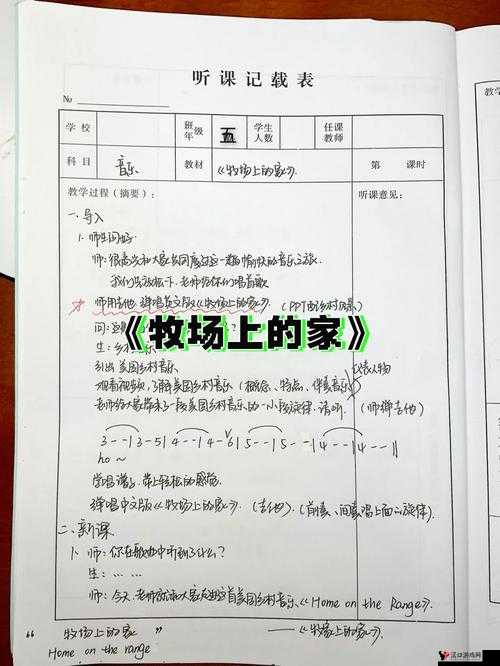 听课记载表
№
学校 班年级 五 学生人数 任课教师
科目 音乐 教材 《牧场上的家》 第 课时
教学过程（摘要）： 听课意见：
一、导入
1. 师生问好
师：很高兴和大家共同度过这一趟愉快的音乐之旅.
我们先放松下，老师给你们唱首歌
师用吉他弹唱英文版《牧场上的家》 (PPT出乡村风景)
问：
《牧场上的家》
生：乡村音乐
引出美国乡村音乐 代表人物
观看视频，了解美国乡村音乐（概念、特点、伴奏音乐
老师给大家带来了一段美国乡村音乐的一小段旋律.请听 (师弹吉他)
3 - - | 3 - 5 | 4 - - | 4 - 6 | 5 - - | 5 - - | 4 - - | 4 - - ‖
ho ~
学唱谱子，带上轻松的感觉
弹唱中文版《牧场上的家》.（吉他）（前奏、间奏唱上面的旋律）
二、新课
1. 师：你在歌曲中听到了什么？
生：… …
师：今天，老师就和大家走进这首美国乡村音乐《Home on the Range》.
“ 牧场上的家 ” ——《牧场上的家》
Home on the range
教学
汉口游戏网